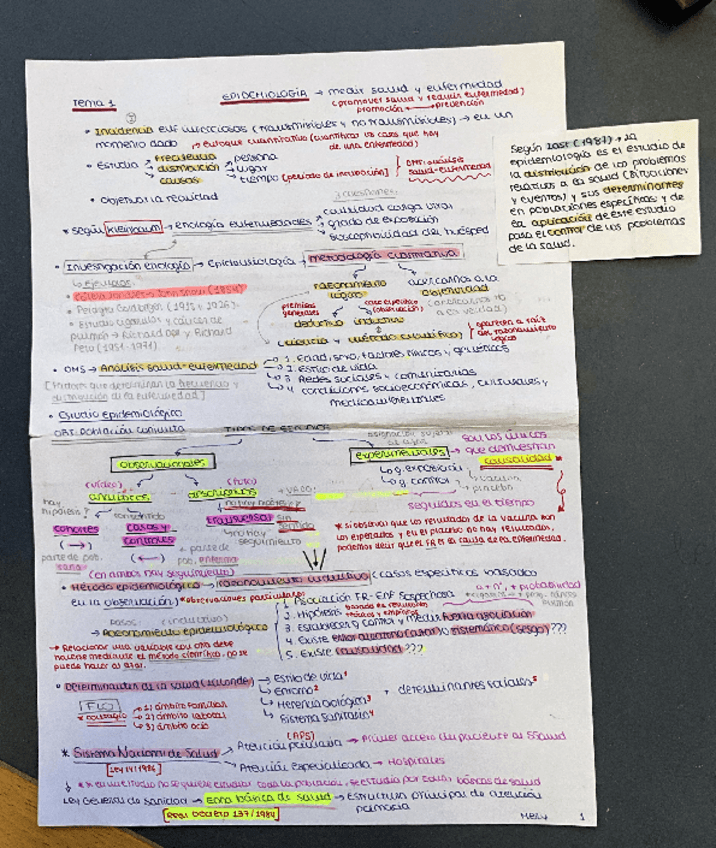 Tema 1
EPIDEMIOLOGÍA → medir salud y enfermedad
(promover salud y reducir enfermedad)
promoción prevención
• Incidencia enf infecciosas (transmisibles y no transmisibles) → en un
momento dado → enfoque cuantitativo (cuantificar los casos que hay
de una enfermedad)
• Estudia → frecuencia → persona
→ distribución → lugar
→ causas → tiempo (periodo de incubación)
OMS: análisis
salud-enfermedad
• Objetivar la realidad
* según Kleinbaum → etiología enfermedades → cantidad carga
→ grado de exposición
→ susceptibilidad del huésped
Según Last (1987), la
epidemiología es el estudio de
la distribución de los problemas
relativos a la salud (situaciones
y eventos) y sus determinantes
en poblaciones específicas y de
la aplicación de este estudio
para el control de los problemas
de la salud.
• Investigación etiología → Epidemiología → metodología cuantitativa
↳ ejemplos:
• Cólera Londres John Snow (1854)
• Pelagra Goldberger (1915 y 1926).
• Estudio cigarrillos y cáncer de
pulmón → Richard Doll y Richard
Peto (1951-1971).
razonamiento
lógico
acercarnos a la
objetividad
premisas
generales
caso específico
(observación)
deductivo inductivo
(ciencia y método científico)
aparecen a raíz
del razonamiento
lógico
• OMS → Análisis salud-enfermedad → 1. Edad, sexo, factores físicos y genéticos
↳ 2. Estilo de vida
↳ 3. Redes sociales y comunitarias
↳ 4. condiciones socioeconómicas, culturales y
medioambientales
[Factores que determinan la frecuencia y
distribución de la enfermedad]
• Estudio epidemiológico
OBS: Población conjunta
TIPOS DE ESTUDIOS
observacionales
experimentales
→ son los únicos
que demuestran
causalidad
↳ g. exposición → vacuna
↳ g. control → placebo
seguidos en el tiempo
(vídeo)
analíticos
(foto)
descriptivos
hay
hipótesis?
cohortes
(→)
casos y
controles
(←)
transversal
no hay
seguimiento
sin
sentido
parte de pob.
sana
+ parte de
pob. enferma
(en ambos hay seguimiento)
* si observar que los resultados de la vacuna son
los esperados y en el placebo no hay resultados,
podemos decir que el FR es la causa de la enfermedad.
• Método epidemiológico → razonamiento inductivo (casos específicos basados
en la observación) *observaciones particulares
pasos: (inductivo)
→ Razonamiento epidemiológico
1. Asociación FR-ENF sospechosa
2. Hipótesis
3. Establecer g control y medir fuerza asociación
4. Existe error aleatorio (azar) o sistemático (sesgo)???
5. Existe causalidad???
→ Relacionar una variable con otra debe
hacerse mediante el método científico, no se
puede hacer al azar.
• Determinantes de la salud (Lalonde) → Estilo de vida¹
→ Entorno²
→ Herencia biológica³
→ Sistema sanitario⁴
+ determinantes sociales⁵
* contagio
→ 1) ámbito familiar
→ 2) ámbito laboral
→ 3) ámbito ocio
* Sistema Nacional de Salud → Atención primaria → Primer acceso del paciente al SSalud
(APS)
→ Atención especializada → Hospitales
[Ley 14/1986]
Ley General de Sanidad → Zona básica de salud → Estructura principal de atención
primaria
[Real Decreto 137/1984]
1